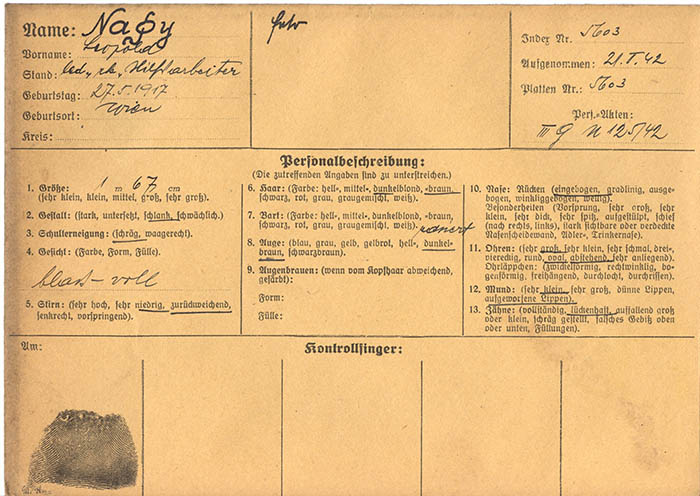 Name: Nagy
Vorname: Leopold
Stand: led., rk., Hilfsarbeiter
Geburtstag: 27.5.1917
Geburtsort: Wien
Kreis:
Index Nr. 5603
Aufgenommen: 21.I.42
Platten Nr.: 5603
Pers.-Akten:
III g N 125/42
Personalbeschreibung:
(Die zutreffenden Angaben sind zu unterstreichen.)
1. Größe: 1 m 67 cm
(sehr klein, klein, mittel, groß, sehr groß).
2. Gestalt: (stark, untersetzt, schlank, schwächlich).
3. Schulterneigung: (schräg, waagerecht).
4. Gesicht: (Farbe, Form, Fülle).
blass - voll
5. Stirn: (sehr hoch, sehr niedrig, zurückweichend,
senkrecht, vorspringend).
6. Haar: (Farbe: hell-, mittel-, dunkelblond, -braun,
schwarz, rot, grau, graugemischt, weiß).
7. Bart: (Farbe: hell-, mittel-, dunkelblond, -braun,
schwarz, rot, grau, graugemischt, weiß). rasiert
8. Auge: (blau, grau, gelb, gelbrot, hell-, dunkel-
braun, schwarzbraun).
9. Augenbrauen: (wenn vom Kopfhaar abweichend,
gefärbt):
Form:
Fülle:
10. Nase: Rücken (eingebogen, gradlinig, ausge-
bogen, winkliggebogen, wellig).
Besonderheiten (Vorsprung, sehr groß, sehr
klein, sehr dick, sehr spitz, aufgestülpt, schief
(nach rechts, links), stark sichtbare oder verdeckte
Nasenscheidewand, Adler-, Trinkernase).
11. Ohren: (sehr groß, sehr klein, sehr schmal, drei-
viereckig, rund, oval, abstehend, sehr anliegend).
Ohrläppchen: (zwickelförmig, rechtwinklig, bo-
genförmig, freihängend, durchlocht, durchrissen).
12. Mund: (sehr klein, sehr groß, dünne Lippen,
aufgeworfene Lippen).
13. Zähne: (vollständig, lückenhaft, auffallend groß
oder klein, schräg gestellt, falsches Gebiß oben
oder unten, Füllungen).
Am:
Kontrollfinger: